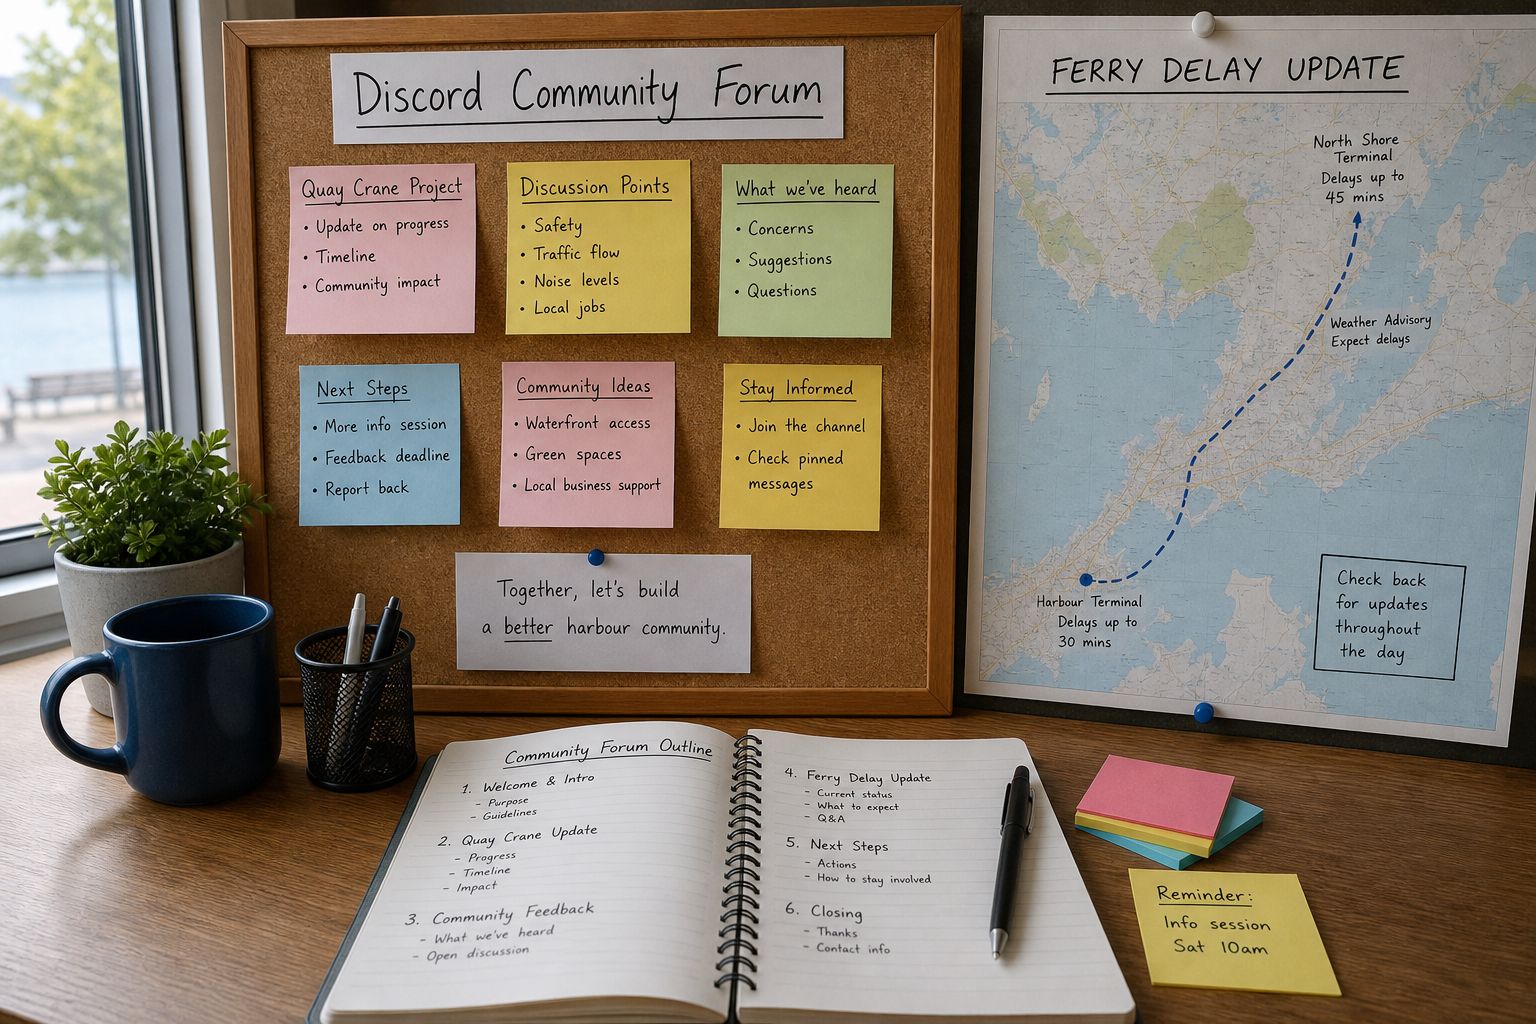 Discord Community Forum
Quay Crane Project
• Update on progress
• Timeline
• Community impact
Discussion Points
• Safety
• Traffic flow
• Noise levels
• Local jobs
What we've heard
• Concerns
• Suggestions
• Questions
Next Steps
• More info session
• Feedback deadline
• Report back
Community Ideas
• Waterfront access
• Green spaces
• Local business support
Stay Informed
• Join the channel
• Check pinned
messages
Together, let's build
a better harbour community.
FERRY DELAY UPDATE
North Shore
Terminal
Delays up to
45 mins
Weather Advisory
Expect delays
Harbour Terminal
Delays up to
30 mins
Check back
for updates
throughout
the day
Community Forum Outline
1. Welcome & Intro
- Purpose
- Guidelines
2. Quay Crane Update
- Progress
- Timeline
- Impact
3. Community Feedback
- What we've heard
- Open discussion
4. Ferry Delay Update
- Current status
- What to expect
- Q&A
5. Next Steps
- Actions
- How to stay involved
6. Closing
- Thanks
- Contact info
Reminder:
Info session
Sat 10am